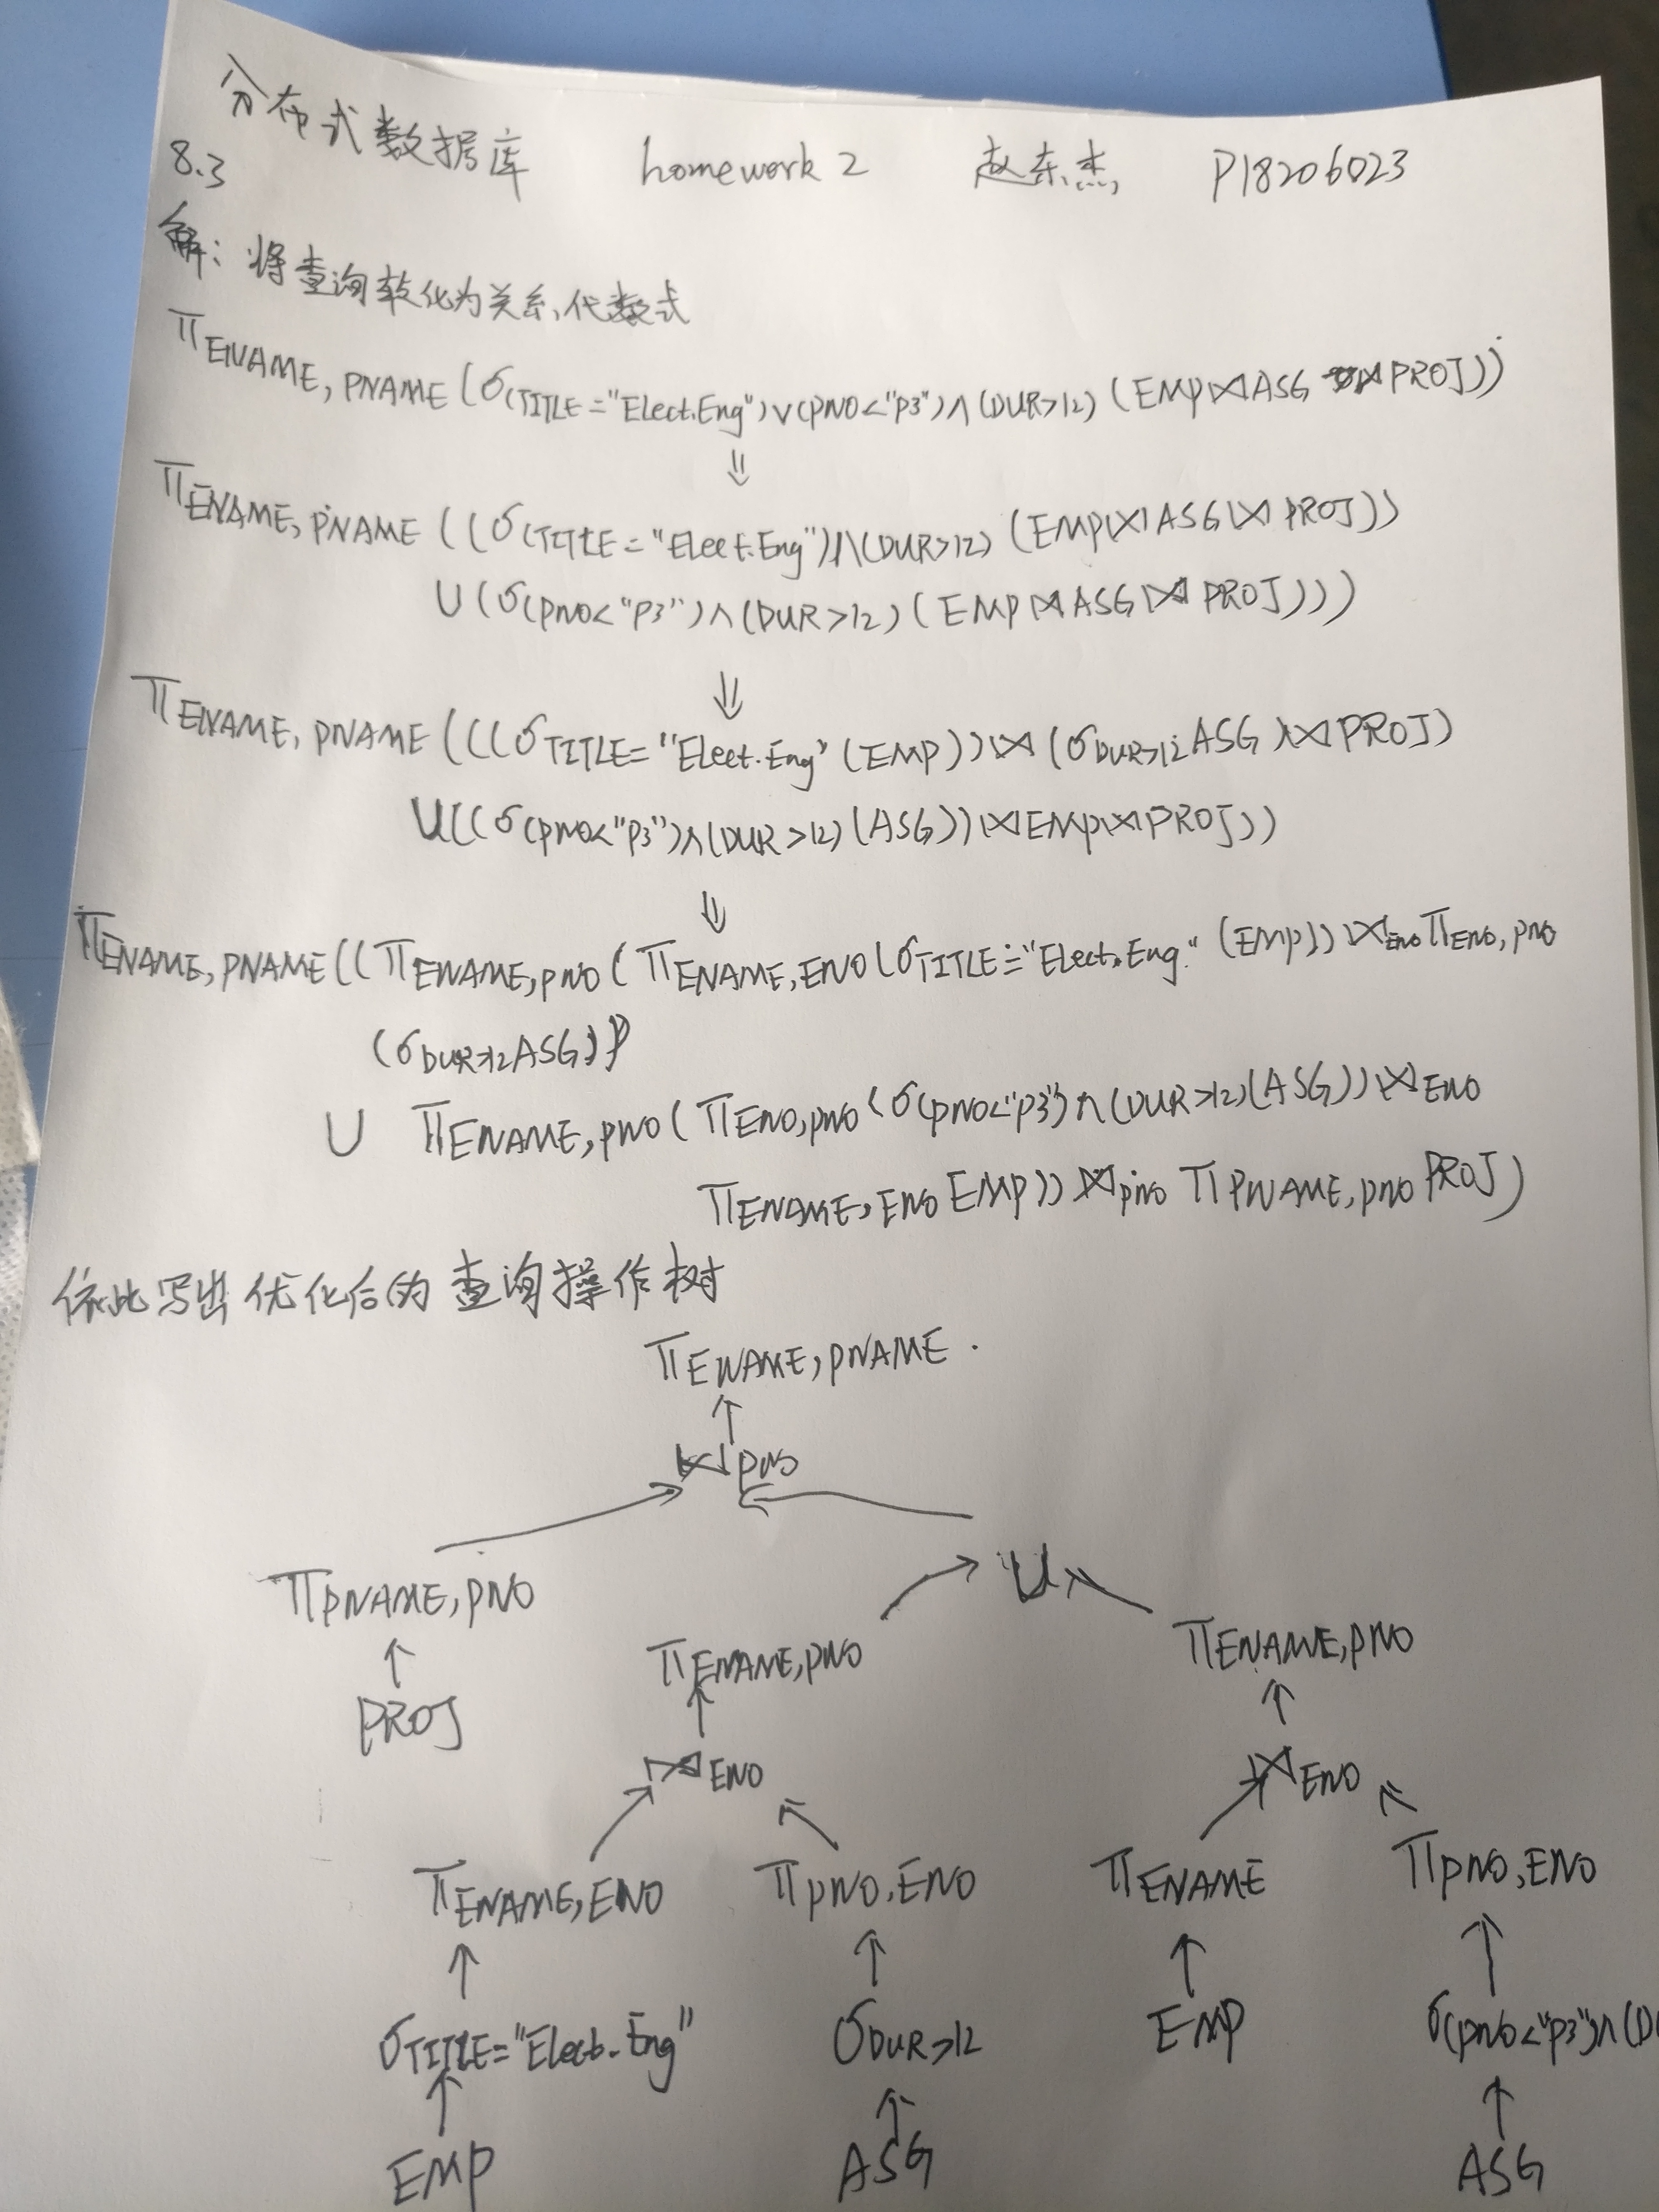 分布式数据库 homework 2 赵东杰 P18206023
8.3
解：将查询转化为关系代数式
π ENAME, PNAME (σ(TITLE="Elect.Eng")∨(PNO<"P3")∧(DUR>12) (EMP⋈ASG ⋈PROJ))
⇓
π ENAME, PNAME ((σ(TITLE="Elect.Eng")∧(DUR>12) (EMP⋈ASG⋈PROJ))
∪(σ(PNO<"P3")∧(DUR>12)(EMP⋈ASG⋈PROJ)))
⇓
π ENAME, PNAME (((σ TITLE="Elect.Eng"(EMP))⋈(σ DUR>12 ASG)⋈PROJ)
∪((σ(PNO<"P3")∧(DUR>12)(ASG))⋈EMP⋈PROJ))
⇓
π ENAME, PNAME((π ENAME, PNO(π ENAME, ENO(σ TITLE="Elect.Eng"(EMP))⋈ENO π ENO, PNO
(σ DUR>12 ASG))
∪ π ENAME, PNO(π ENO, PNO(σ(PNO<"P3")∧(DUR>12)(ASG))⋈ENO
π ENAME, ENO EMP))⋈PNO π PNAME, PNO PROJ)
依此写出优化后的查询操作树
π ENAME, PNAME.
↑
⋈PNO
π PNAME, PNO ∪
↑ π ENAME, PNO π ENAME, PNO
PROJ ↑ ↑
⋈ENO ⋈ENO
π ENAME, ENO π PNO, ENO π ENAME π PNO, ENO
↑ ↑ ↑ ↑
σ TITLE="Elect.Eng" σ DUR>12 EMP σ(PNO<"P3")∧(D
↑ ↑ ↑
EMP ASG ASG